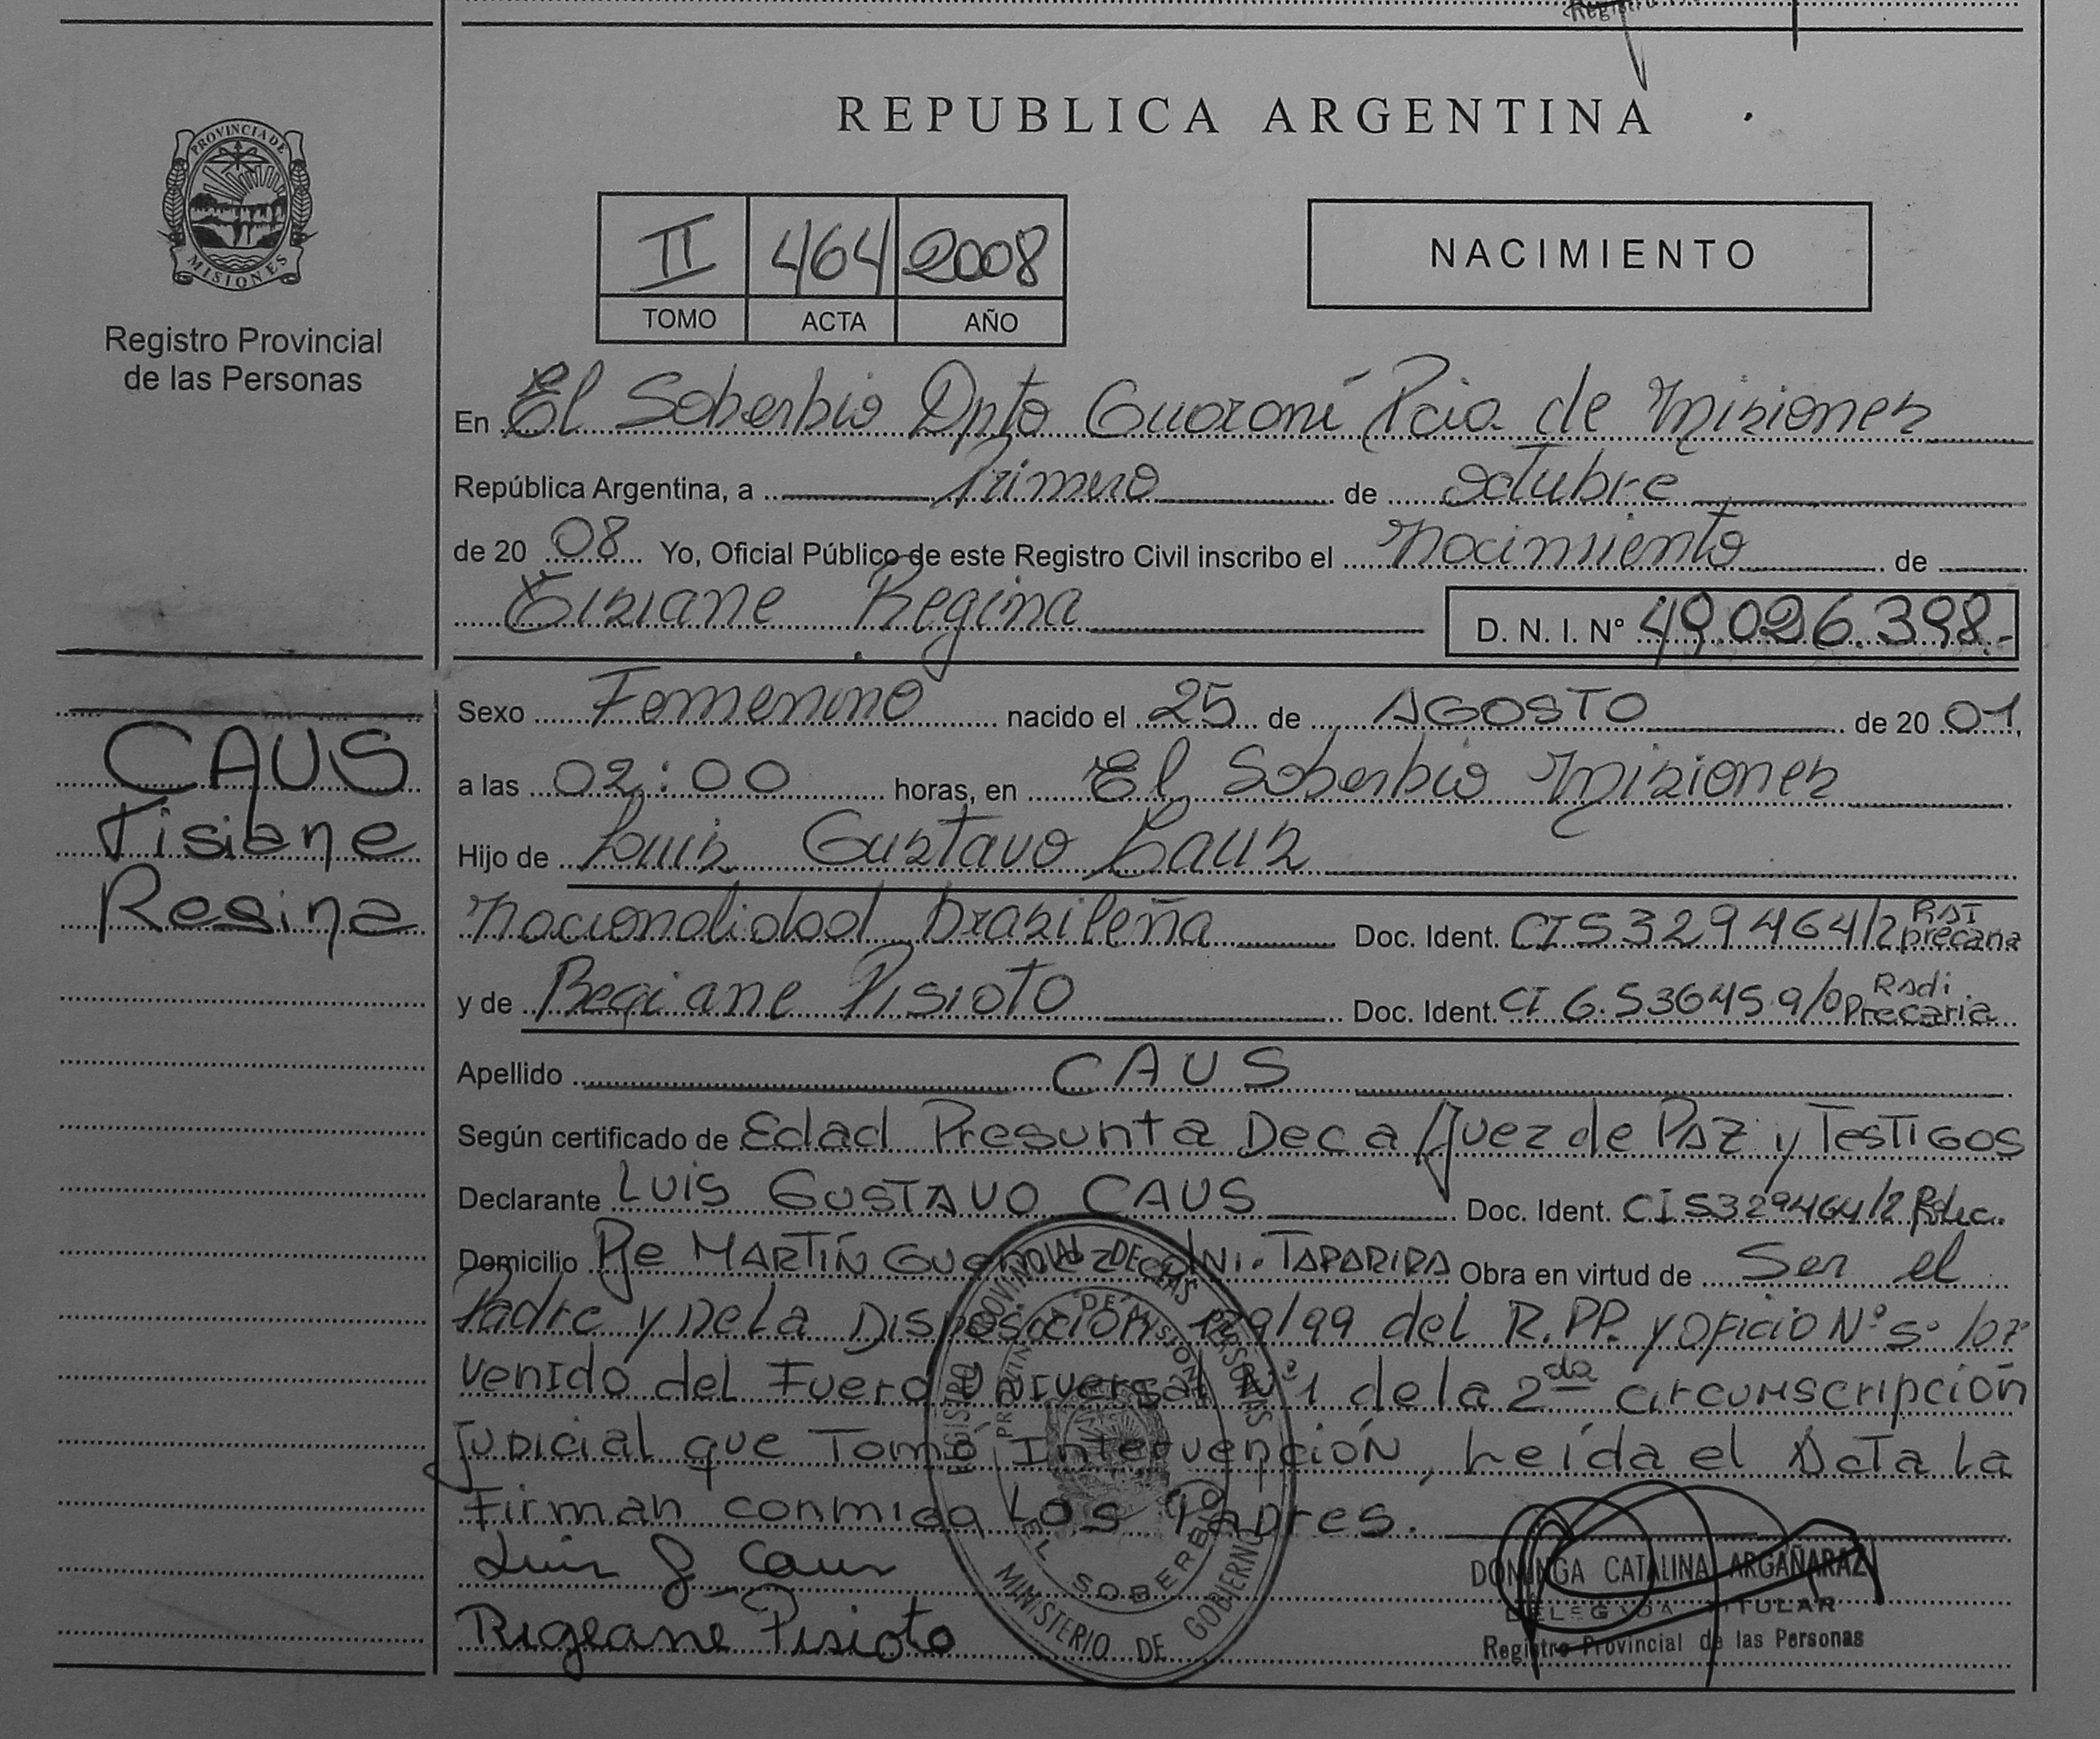 REPUBLICA ARGENTINA
PROVINCIA DE MISIONES
Registro Provincial
de las Personas
II 464 2008
TOMO ACTA AÑO
NACIMIENTO
En El Soberbio Dpto Guaraní Pcia de Misiones
República Argentina, a Primero de octubre
de 20 08 Yo, Oficial Público de este Registro Civil inscribo el Nacimiento de
Tisiane Regina D. N. I. N° 49.026.398.-
CAUS
Tisiane
Regina
Sexo Femenino nacido el 25 de AGOSTO de 20 01,
a las 02:00 horas, en El Soberbio Misiones
Hijo de Luis Gustavo Caus
Nacionalidad Brasileña Doc. Ident. CI 5329464/2 precaria
y de Regiane Pisioto Doc. Ident. CI 6.536459/0 Rsdi. Precaria
Apellido CAUS
Según certificado de Edad Presunta Dec a Juez de Paz y Testigos
Declarante LUIS GUSTAVO CAUS Doc. Ident. CI 5329464/2
Domicilio Pje MARTÍN Obra en virtud de Ser el
Padre y De la Disposición 179/99 del R.PP. y oficio N° 5° /07
venido del Fuero Universal N°1 de la 2da circunscripción
Judicial que Tomó Intervención, Leída el Acta La
Firman conmigo Los Padres.
Luis G. Caus
Rigeane Pisioto
REGISTRO PROVINCIAL DE LAS PERSONAS
PROVINCIA DE MISIONES
EL SOBERBIO
MINISTERIO DE GOBIERNO
DOMINGA CATALINA ARGAÑARAZ
DELEGADA TITULAR
Registro Provincial de las Personas